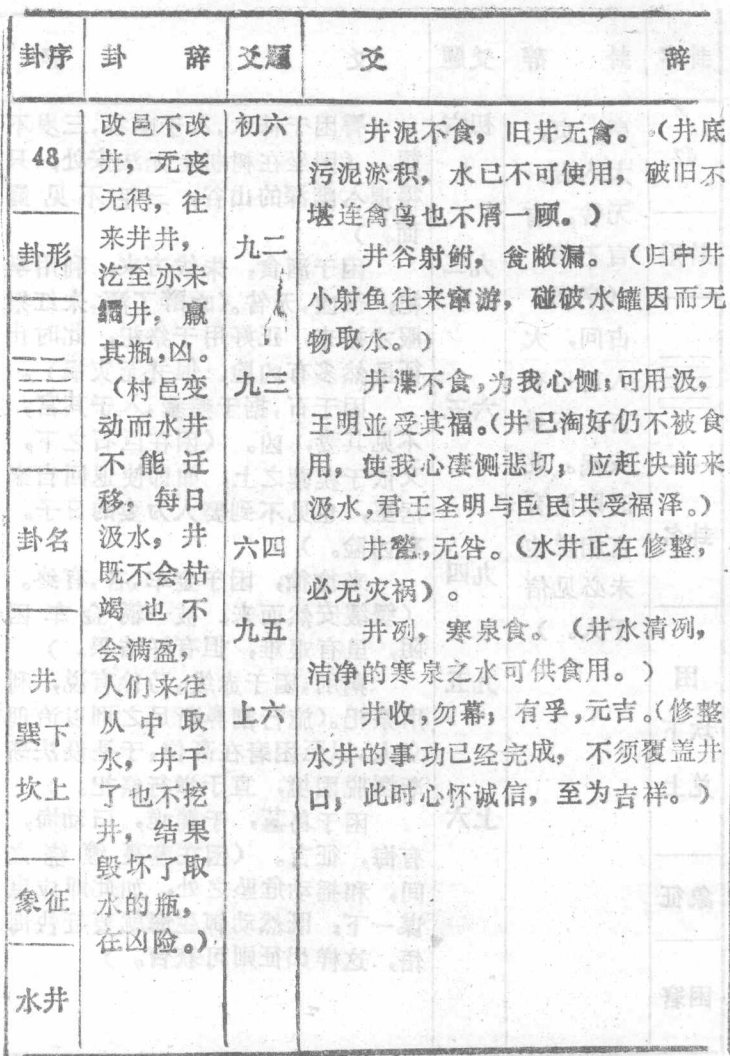 卦序
卦 辞
爻题
爻 辞
48
卦形
卦名
井
巽下
坎上
象征
水井
改邑不改
井，无丧
无得，往
来井井，
汔至亦未
繘井，羸
其瓶，凶。
（村邑变
动而水井
不能迁
移，每日
汲水，井
既不会枯
竭也不
会满盈，
人们来往
从中取
水，井干
了也不挖
井，结果
毁坏了取
水的瓶，
在凶险。）
初六
井泥不食，旧井无禽。（井底
污泥淤积，水已不可使用，破旧不
堪连禽鸟也不屑一顾。）
九二
井谷射鲋，瓮敝漏。（归中井
小射鱼往来窜游，碰破水罐因而无
物取水。）
九三
井渫不食，为我心恻；可用汲，
王明並受其福。（井已淘好仍不被食
用，使我心凄恻悲切；应赶快前来
汲水，君王圣明与臣民共受福泽。）
六四
井甃，无咎。（水井正在修整，
必无灾祸）。
九五
井冽，寒泉食。（井水清冽，
洁净的寒泉之水可供食用。）
上六
井收，勿幕；有孚，元吉。（修整
水井的事功已经完成，不须覆盖井
口；此时心怀诚信，至为吉祥。）